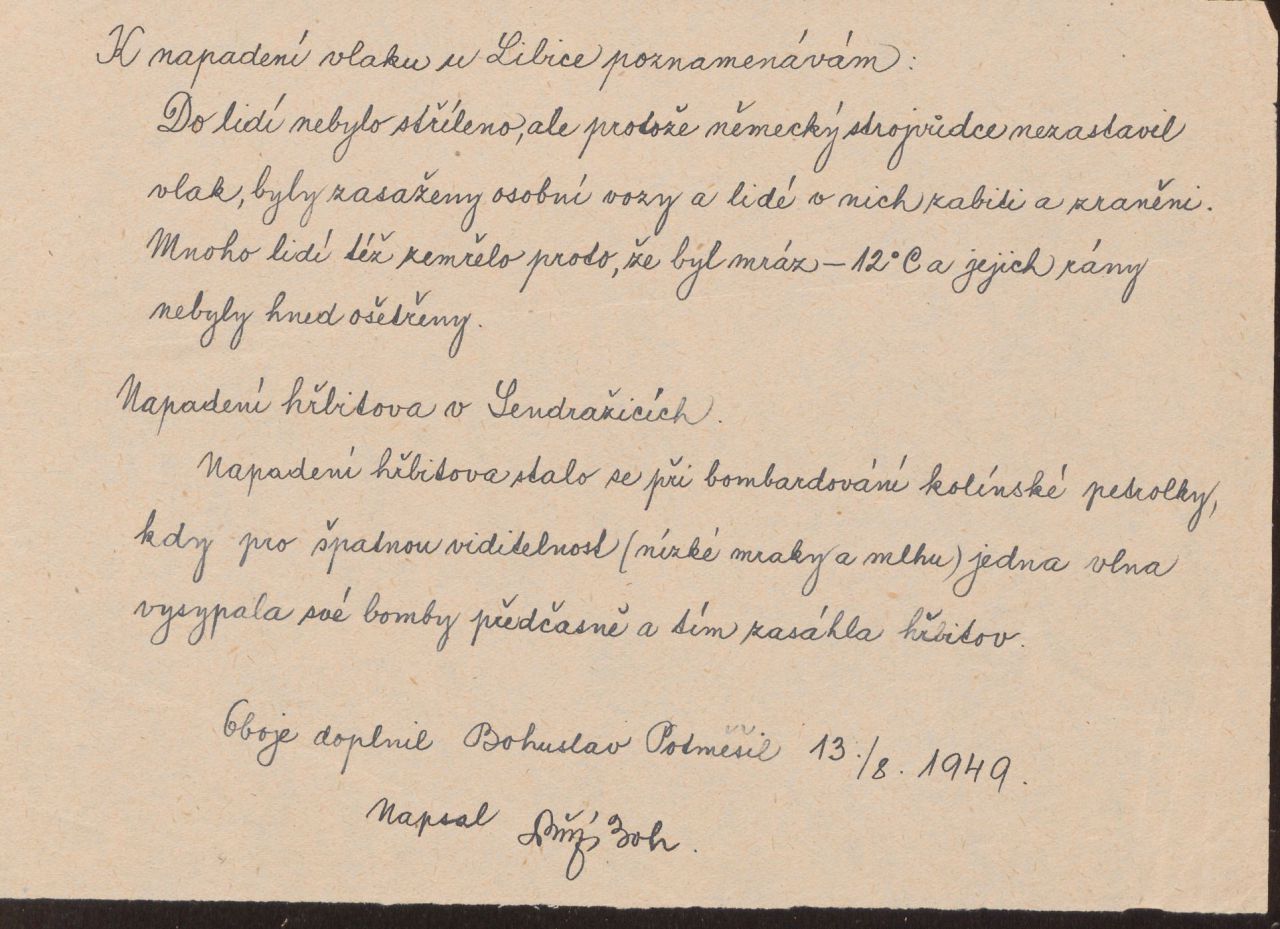 K napadení vlaku u Libice poznamenávám:
Do lidí nebylo stříleno, ale protože německý strojvůdce nezastavil
vlak, byly zasaženy osobní vozy a lidé v nich zabiti a zraněni.
Mnoho lidí též zemřelo proto, že byl mráz – 12°C a jejich rány
nebyly hned ošetřeny.
Napadení hřbitova v Sendražicích.
Napadení hřbitova stalo se při bombardování kolínské petrolky,
kdy pro špatnou viditelnost (nízké mraky a mlhu) jedna vlna
vysypala své bomby předčasně a tím zasáhla hřbitov.
Oboje doplnil Bohuslav Potměšil 13./8. 1949.
Napsal